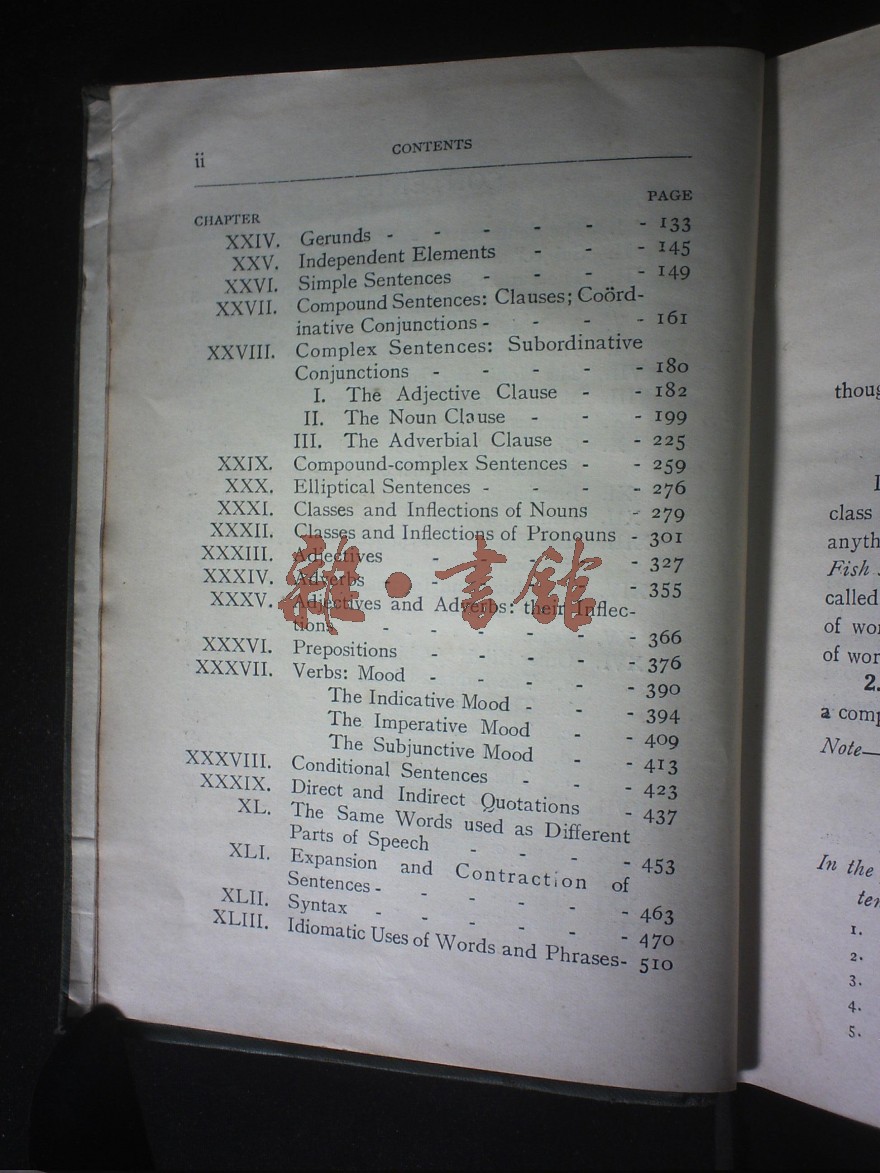 ii
CONTENTS
CHAPTER PAGE
XXIV. Gerunds - - - - - - 133
XXV. Independent Elements - - - 145
XXVI. Simple Sentences - - - - 149
XXVII. Compound Sentences: Clauses; Coörd-
inative Conjunctions - - - - 161
XXVIII. Complex Sentences: Subordinative
Conjunctions - - - - - 180
I. The Adjective Clause - - 182
II. The Noun Clause - - - 199
III. The Adverbial Clause - - 225
XXIX. Compound-complex Sentences - - 259
XXX. Elliptical Sentences - - - - 276
XXXI. Classes and Inflections of Nouns - 279
XXXII. Classes and Inflections of Pronouns - 301
XXXIII. Adjectives - - - - - 327
XXXIV. Adverbs - - - - - - 355
XXXV. Adjectives and Adverbs: their Inflec-
tions - - - - - - 366
XXXVI. Prepositions - - - - - 376
XXXVII. Verbs: Mood - - - - - 390
The Indicative Mood - - - 394
The Imperative Mood - - 409
The Subjunctive Mood - - 413
XXXVIII. Conditional Sentences - - - 423
XXXIX. Direct and Indirect Quotations - 437
XL. The Same Words used as Different
Parts of Speech - - - - 453
XLI. Expansion and Contraction of
Sentences - - - - - - 463
XLII. Syntax - - - - - - 470
XLIII. Idiomatic Uses of Words and Phrases- 510
雜·書館
class
Fish
called
of
of
2.
a
Note—
In the
1.
2.
3.
4.
5.